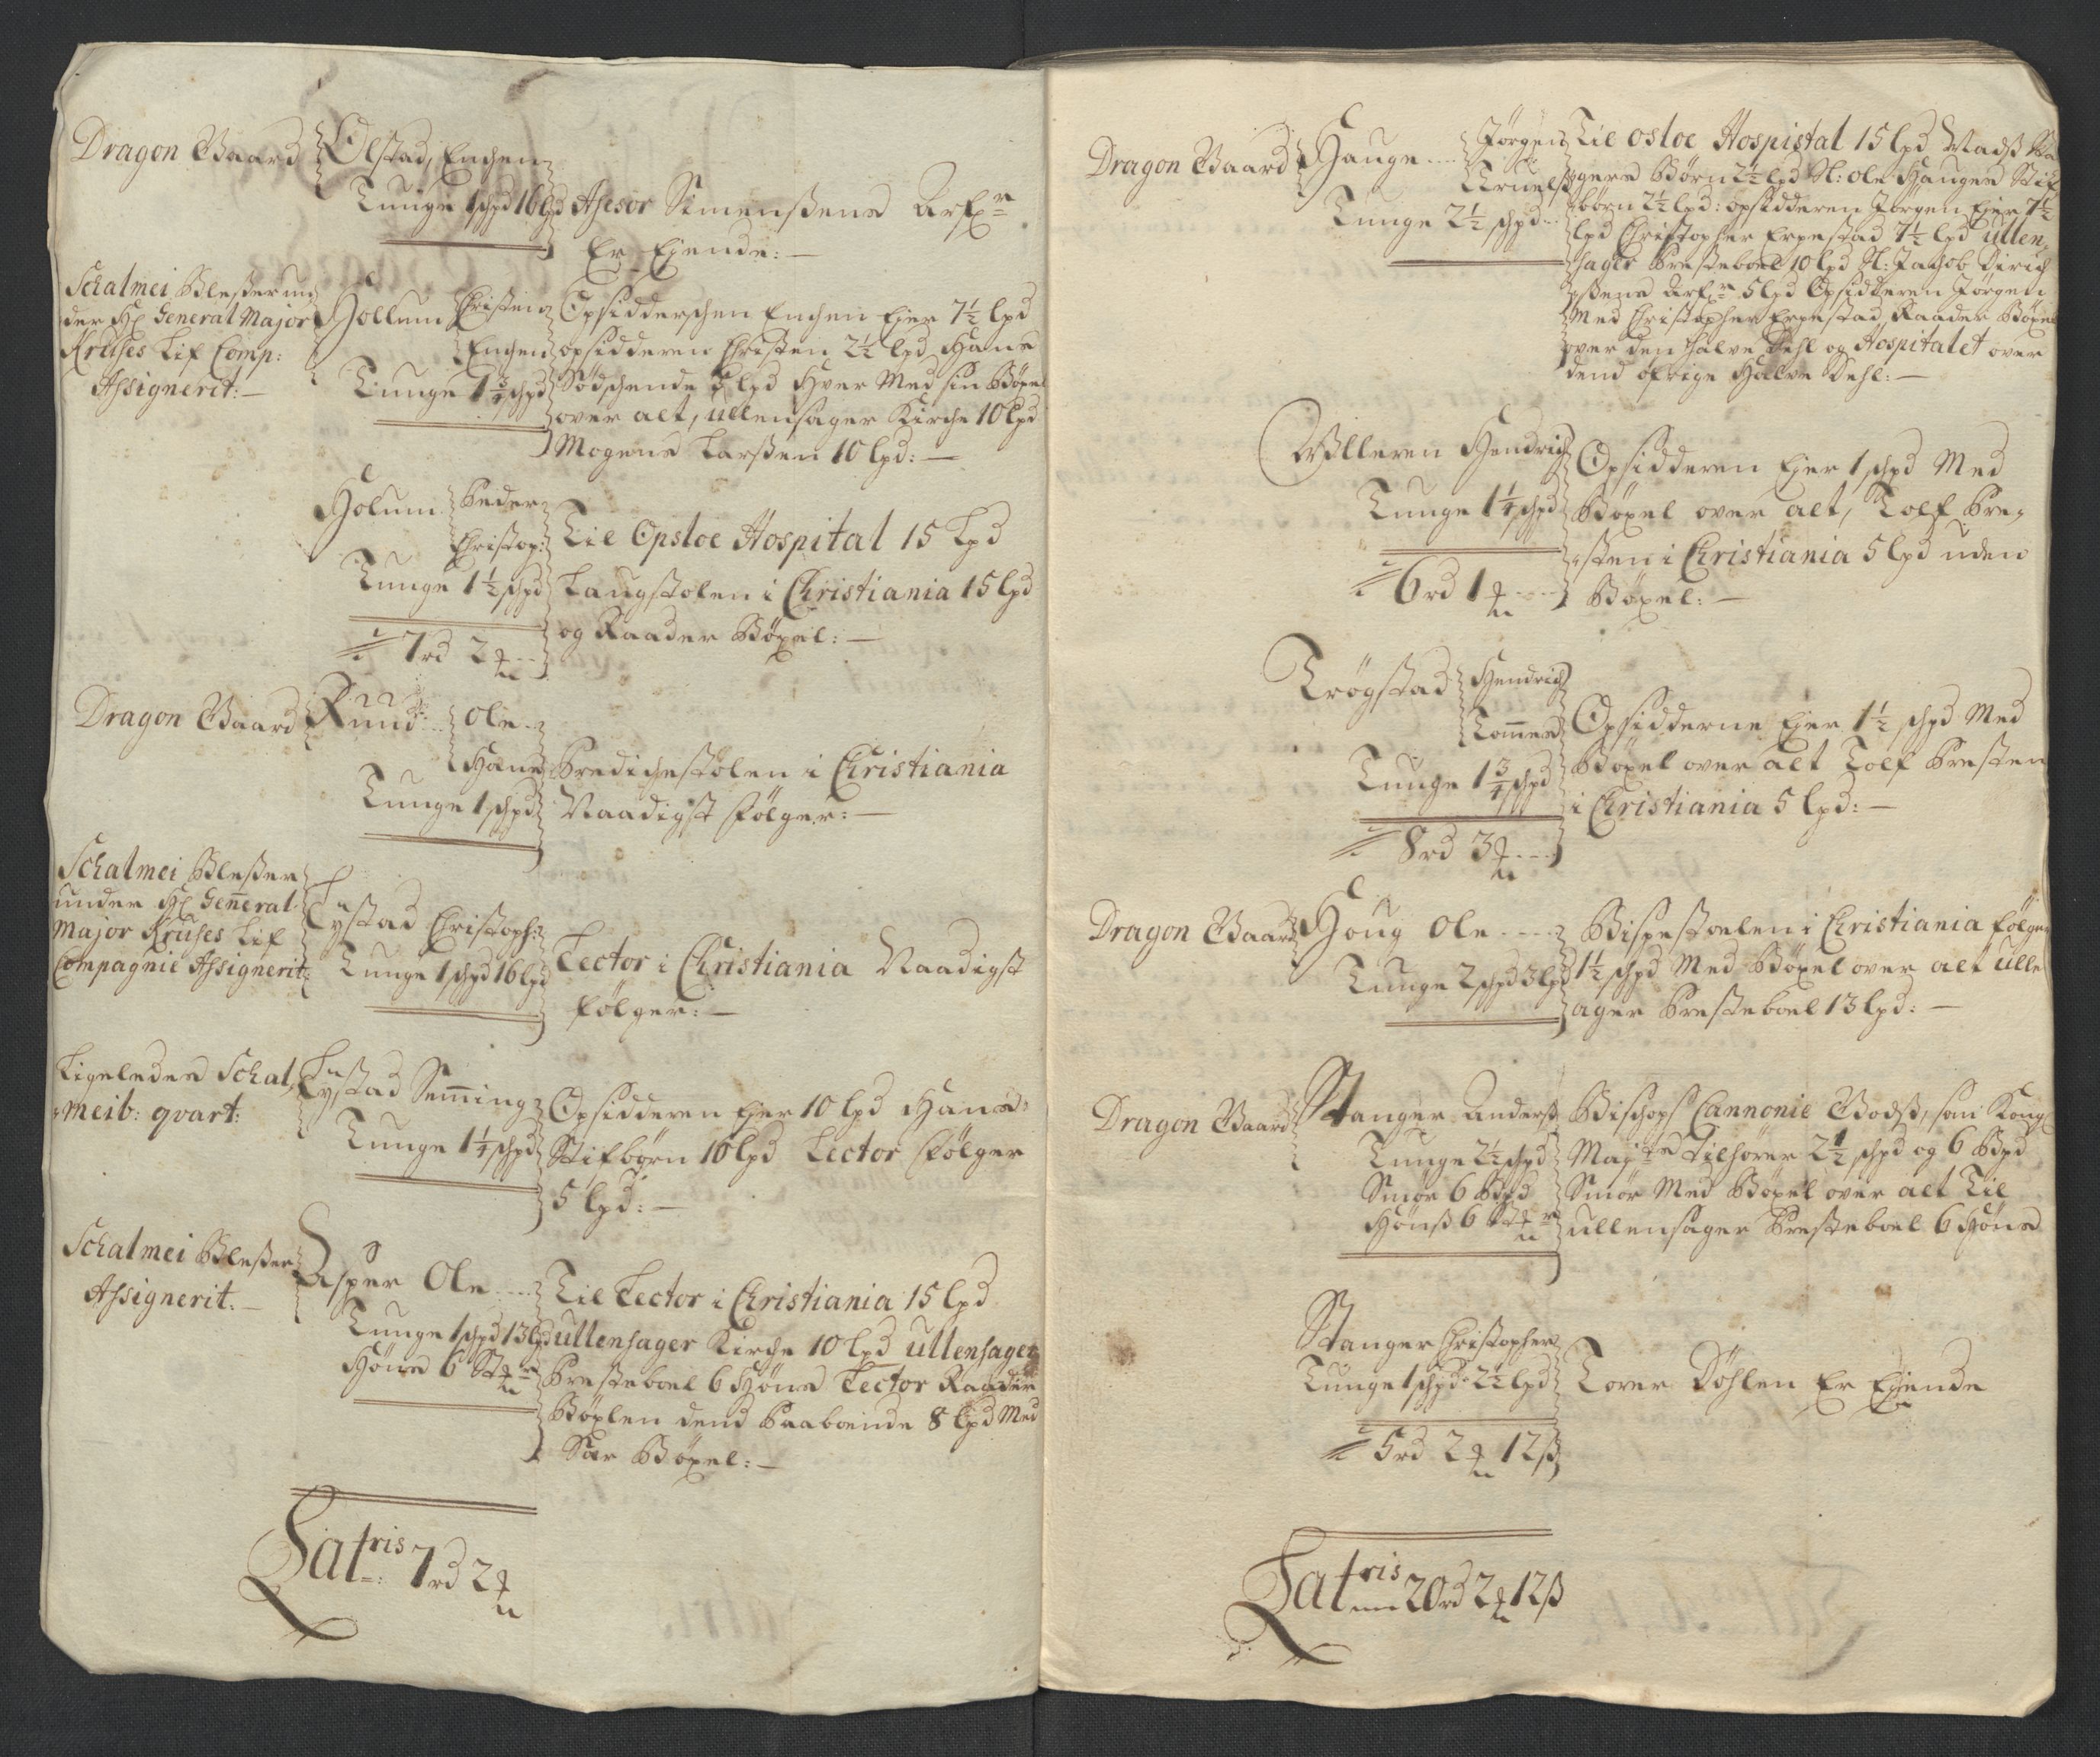 Dragon Gaard
Ølstad, Enchen
Tunge 1 schpd 16 lpd
Assesor Simenßens Arf:r
Er Ejende: —
Schalmei Bleßer un¬
der Hr General Major
Kruses Lif Comp:
Assignerit: —
Hollum Christen
Enchen
Tunge 1¾ schpd
Opsidderschen Enchen Ejer 7½ lpd
opsidderen Christen 2½ lpd Hans
Södschende 5 lpd Hver Med sin Böxel
over alt, ullensager Kirche 10 lpd
Mogens Larßen 10 lpd: —
Holum Peder
Christop:
Tunge 1½ schpd
7 rd 2
Til Opsloe Hospital 15 Lpd
Laugstolen i Christiania 15 lpd
og Raader Böxel: —
Dragon Gaard
Rund Ole
Hans
Tunge 1 schpd
Predichestolen i Christiania
Naadigst følger: —
Schalmei Bleßer
under Hr General
Major Kruses Lif
Compagnie Assignerit:
Lystad Christoph:
Tunge 1 schpd 16 lpd
Lector i Christiania Naadigst
følger: —
Ligeledes Schal¬
meib: qvart:
Lystad Semming
Tunge 1¼ schpd
Opsidderen Ejer 10 lpd Hans
Stifbørn 10 lpd Lector følger
5 lpd: —
Schalmei Bleßer
Assignerit: —
Asper Ole
Tunge 1 schpd 13 lpd
Høns 6 St:r
Til Lector i Christiania 15 lpd
ullensager Kirche 10 lpd ullensager
Presteboel 6 Høns Lector Raader
Böxlen dend Paaboende 8 lpd Med
Sær Böxel: —
Lat:ris 7 rd 2
Dragon Gaard
Hauge Jørgen
Truels
Tunge 2½ schpd
Til osloe Hospistal 15 lpd Madß
gers Børn 2½ lpd Sl: Ole Hauges Stif
børn 2½ lpd: opsidderen Jorgen Ejer 7½
lpd Christopher Erpestad 7½ lpd ullen¬
sager Presteboel 10 lpd Sl: Jacob Dirich
ßens Arf:r 5 lpd Opsidderen Jorgen
Med Christopher Erpestad Raader Böxel
over den halve Dehl og Hospitalet over
dend öfrige Halve Dehl: —
Willeren Hendrich
Tunge 1¼ schpd
6 rd 1
Opsidderen Ejer 1 schpd Med
Böxel over alt, Tolf Pre¬
sten i Christiania 5 lpd uden
Böxel: —
Trögstad Hendrich
Tommes
Tunge 1¾ schpd
8 rd 3
Opsidderne Ejer 1½ schpd Med
Böxel over alt Tolf Presten
i Christiania 5 lpd: —
Dragon Gaard
Houg Ole
Tunge 2 schpd 3 lpd
Bispestoelen i Christiania følger
1½ schpd Med Böxel over alt ulle
ager Presteboel 13 lpd: —
Dragon Gaard
Stanger Anderß
Tunge 2½ schpd
Smör 6 Bpd
Hönß 6 St:r
Bischops Cannonie Godß, som Kongl
Maj:ts Tilhører 2½ schpd og 6 Bpd
Smör Med Böxel over alt Til
ullensager Presteboel 6 Höns
Stanger Christopher
Tunge 1 schpd 2½ lpd
5 rd 2 12 ß
Tover Döhlen Er Ejende
Lat:ris 20 rd 2 12 ß